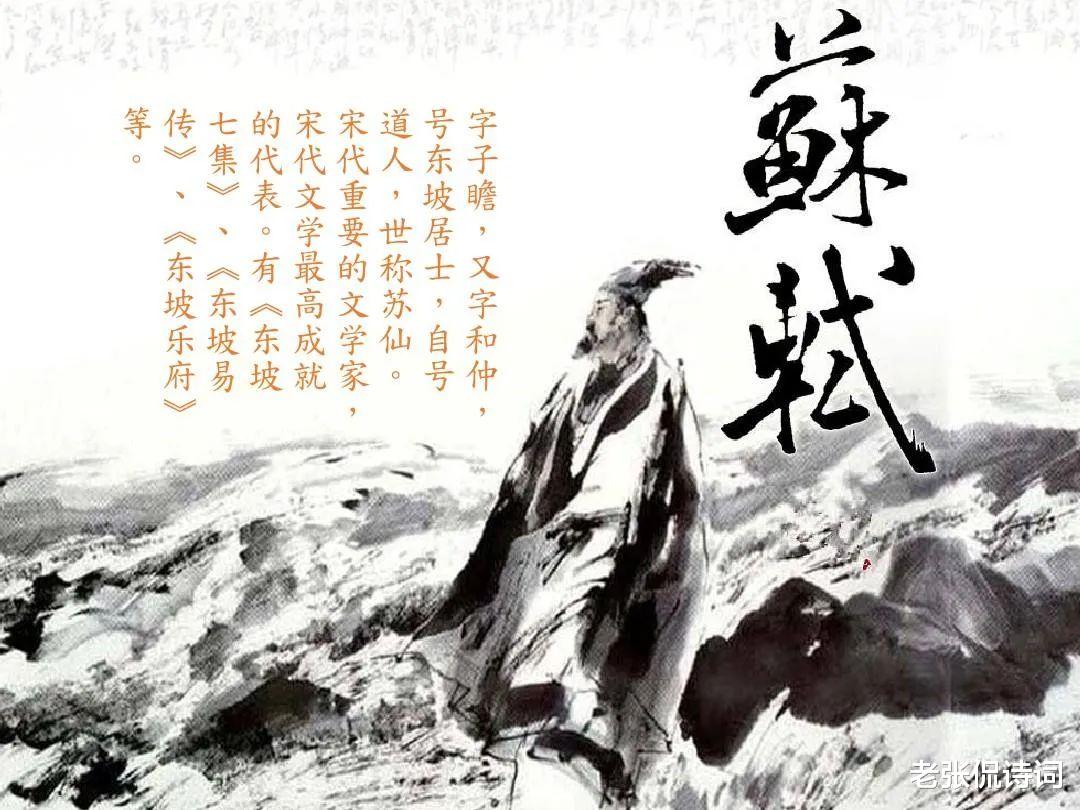 蘇軾
字子瞻，又字和仲，
号东坡居士，自号
道人，世称苏仙。
宋代重要的文学家，
宋代文学最高成就
的代表。有《东坡
七集》、《东坡易
传》、《东坡乐府》
等。
老张侃诗词